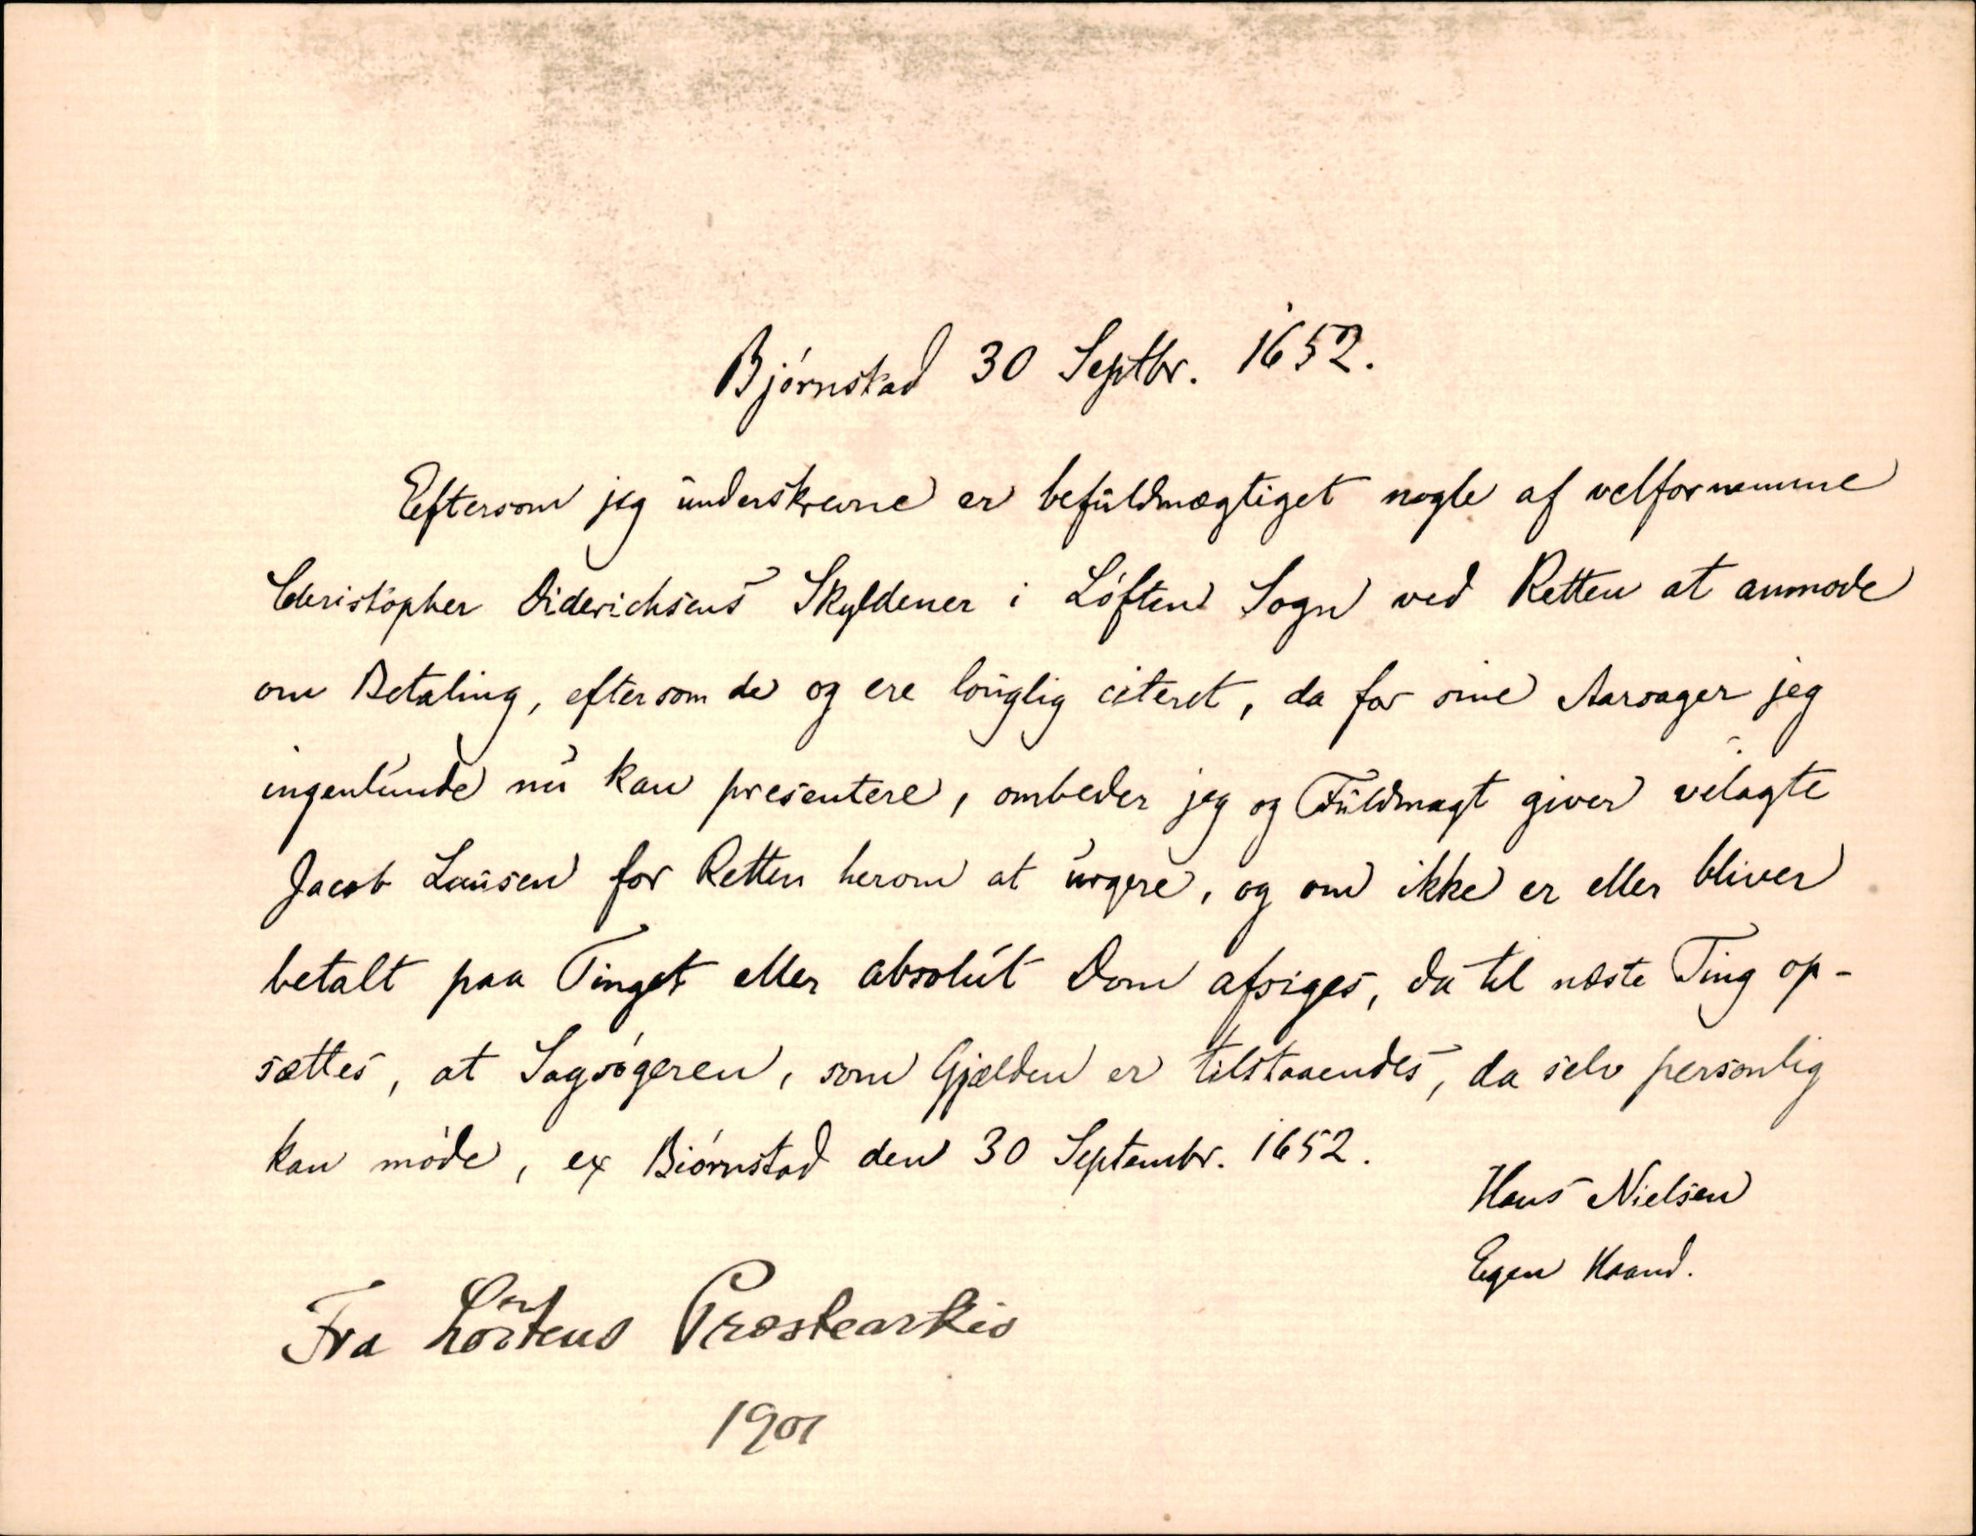 Bjørnstad 30 Septbr. 1652.
Eftersom jeg underskrevne er befuldmægtiget nogle af velfornemme
Christopher Diderichsens Skyldener i Løften Sogn ved Retten at anmode
om Betaling, eftersom de og ere louglig citeret, da for sine Aarsager jeg
ingenlunde nu kan presentere, ombeder jeg og Fuldmagt giver velagte
Jacob Lausen for Retten herom at urgere, og om ikke er eller bliver
betalt paa Tinget eller absolut Dom afsiges, da til næste Ting op-
sættes, at Sagsøgeren, som Gjælden er tilstaaendes, da selv personlig
kan møde, ex Biørnstad den 30 Septembr. 1652.
Hans Nielsen
Egen Haand.
Fra Løitens Præstearkiv
1901